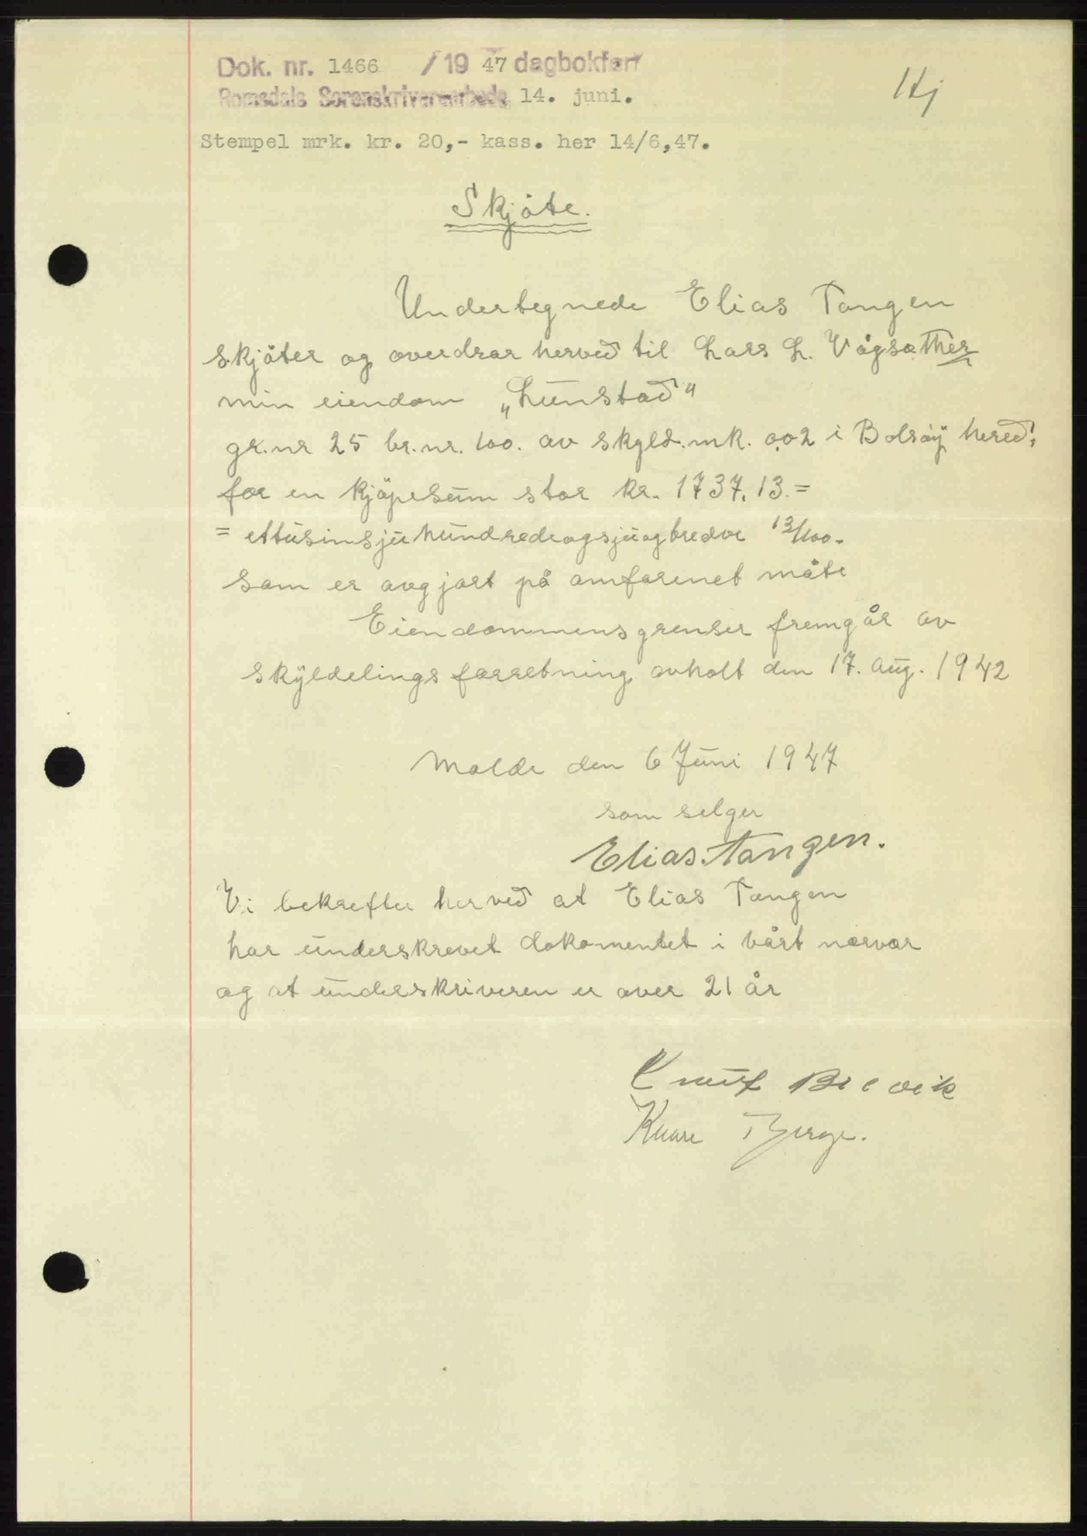 Dok. nr. 1466 / 19 47 dagbokført
Romsdals Sorenskriverembede 14. juni.
Hj
Stempel mrk. kr. 20,- kass. her 14/6,47.
Skjöte.
Undertegnede Elias Tangen
skjöter og overdrar herved til Lars L. Vågsæther
min eiendom „Lunstad"
gr.nr 25 br.nr. 100. av skyld.mk. 0.02 i Bolsöy hered:
for en kjöpesum stor kr. 1737.13.=
= ettusinsjuhundredeogsjuogtredve 13/100.
som er avgjort på omforenet måte
Eiendommens grenser fremgår av
skyldelings forretning avholt den 17. Aug. 1942
Molde den 6 Juni 1947
som selger
Elias Tangen.
Vi bekrefter herved at Elias Tangen
har underskrevet dokomentet i vårt nærvær
og at underskriveren er over 21 år
Knut
Kaare Berge.